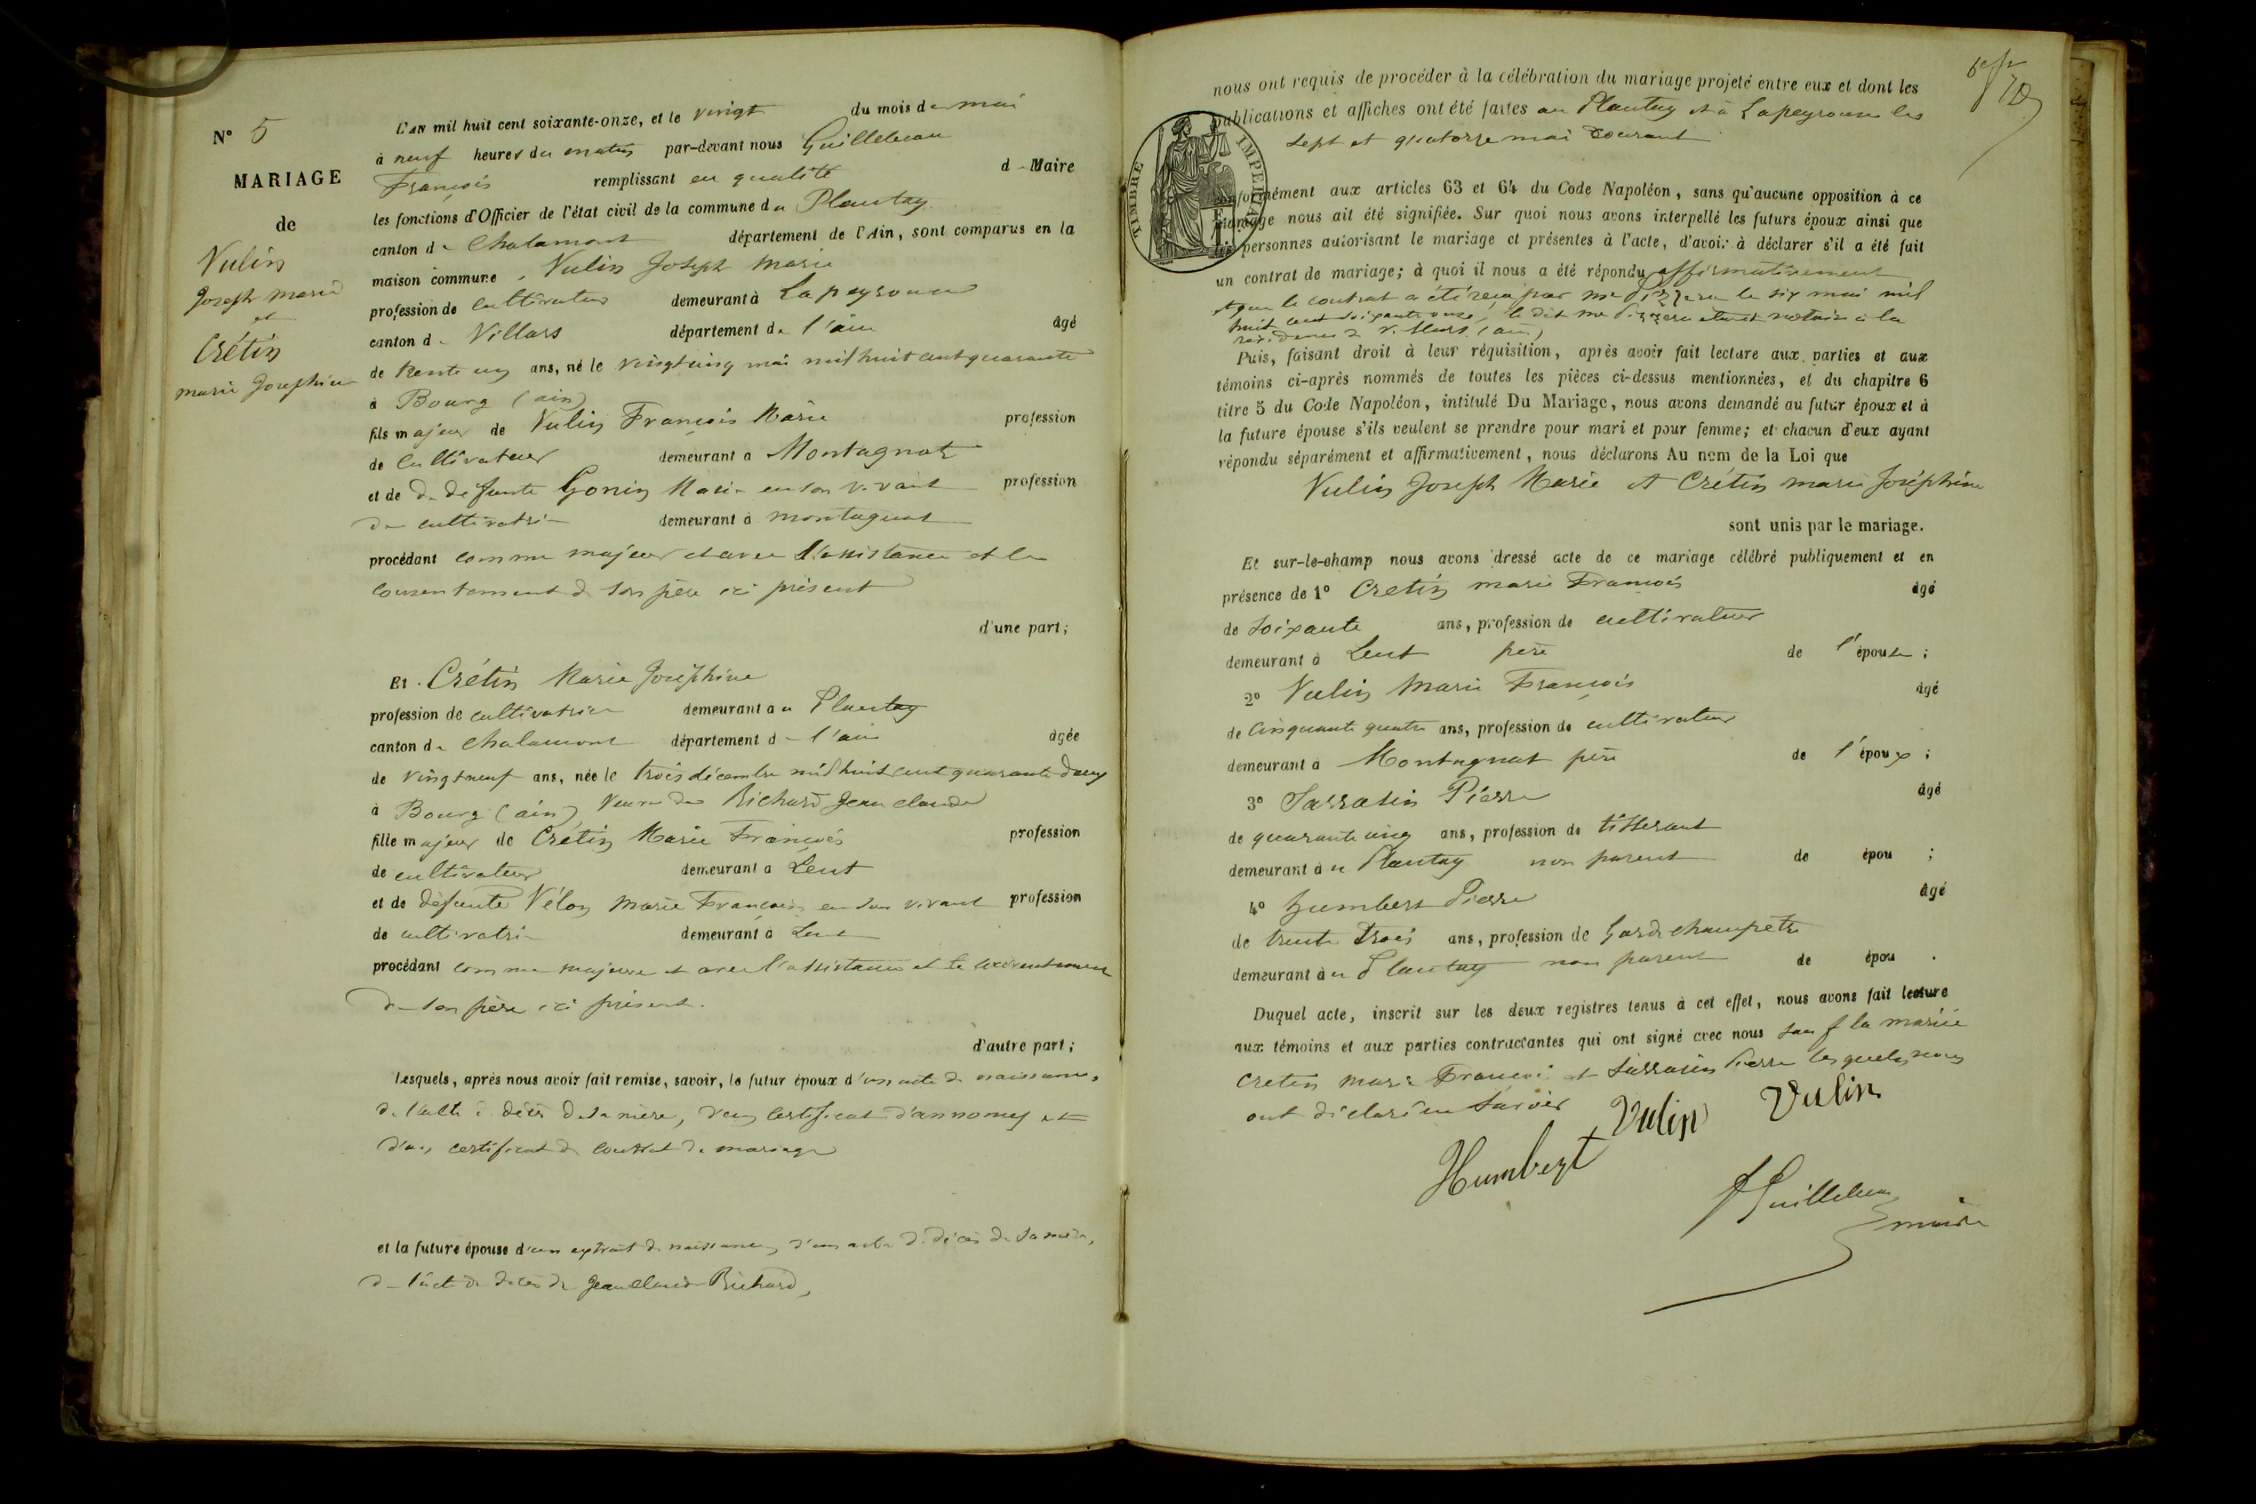 N° 5
MARIAGE
de
Vulin
Joseph marie
et
Crétin
marie Josephine
L'AN mil huit cent soixante-onze, et le vingt du mois de mai
à neuf heures du matin par-devant nous Guillebeau
François remplissant en qualité d- Maire
les fonctions d'Officier de l'état civil de la commune du Plantay
canton de Chalamont département de l'Ain, sont comparus en la
maison commune, Vulin Joseph Marie
profession de cultivateur demeurant à Lapeyrouse
canton de Villars département de l'ain âgé
de trente un ans, né le vingt cinq mai mil huit cent quarante
à Bourg (ain)
fils majeur de Vulin François Marie profession
de Cultivateur demeurant à Montagnat
et de défunte Gonin Marie en son vivant profession
de cultivatrice demeurant à montagnat
procédant comme majeur et avec l'assistance et le
consentement de son père ici présent
d'une part;
Et Crétin Marie Joséphine
profession de cultivatrice demeurant au Plantay
canton de Chalamont département de l'ain âgée
de vingt neuf ans, née le trois décembre mil huit cent quarante deux
à Bourg (ain) Veuve de Richard Jean claude
fille majeur de Crétin Marie François profession
de cultivateur demeurant à Lent
et de défunte Vélon Marie Françoise en son vivant profession
de cultivatrice demeurant à Lent
procédant comme majeure et avec l'assistance et le consentement
de son père ici présent.
d'autre part;
Lesquels, après nous avoir fait remise, savoir, le futur époux d'un acte de naissance,
de l'acte de décès de sa mère, d'un certificat d'annonces et
d'un certificat de contrat de mariage
et la future épouse d'un extrait de naissance, d'un acte de décès de sa mère,
de l'acte de décès de Jean Claude Richard,
nous ont requis de procéder à la célébration du mariage projeté entre eux et dont les
publications et affiches ont été faites au Plantay et à Lapeyrouse les
sept et quatorze mai courant
TIMBRE IMPERIAL
conformément aux articles 63 et 64 du Code Napoléon, sans qu'aucune opposition à ce
mariage nous ait été signifiée. Sur quoi nous avons interpellé les futurs époux ainsi que
les personnes autorisant le mariage et présentes à l'acte, d'avoir à déclarer s'il a été fait
un contrat de mariage; à quoi il nous a été répondu affirmativement
et que le contrat a été reçu par me le six mai mil
huit cent soixante onze, le dit me étant notaire à la
résidence de Villars (ain)
Puis, faisant droit à leur réquisition, après avoir fait lecture aux parties et aux
témoins ci-après nommés de toutes les pièces ci-dessus mentionnées, et du chapitre 6
titre 5 du Code Napoléon, intitulé Du Mariage, nous avons demandé au futur époux et à
la future épouse s'ils veulent se prendre pour mari et pour femme; et chacun d'eux ayant
répondu séparément et affirmativement, nous déclarons Au nom de la Loi que
Vulin Joseph Marie et Crétin marie Joséphine
sont unis par le mariage.
Et sur-le-champ nous avons dressé acte de ce mariage célébré publiquement et en
présence de 1° Cretin marie François âgé
de soixante ans, profession de cultivateur
demeurant à Lent père de l'épouse;
2° Vulin Marie François âgé
de cinquante quatre ans, profession de cultivateur
demeurant à Montagnat père de l'époux;
3° Sarrasin Pierre âgé
de quarante cinq ans, profession de tisserant
demeurant au Plantay non parent de épou ;
4° humbert Pierre âgé
de trente trois ans, profession de Garde champêtre
demeurant au Plantay non parent de épou .
Duquel acte, inscrit sur les deux registres tenus à cet effet, nous avons fait lecture
aux témoins et aux parties contractantes qui ont signé avec nous sauf la mariée
Cretin marie François et Sarrasin Pierre lesquels nous
ont déclaré ne savoir
Vulin Vulin
Humbert
Guillebeau
maire